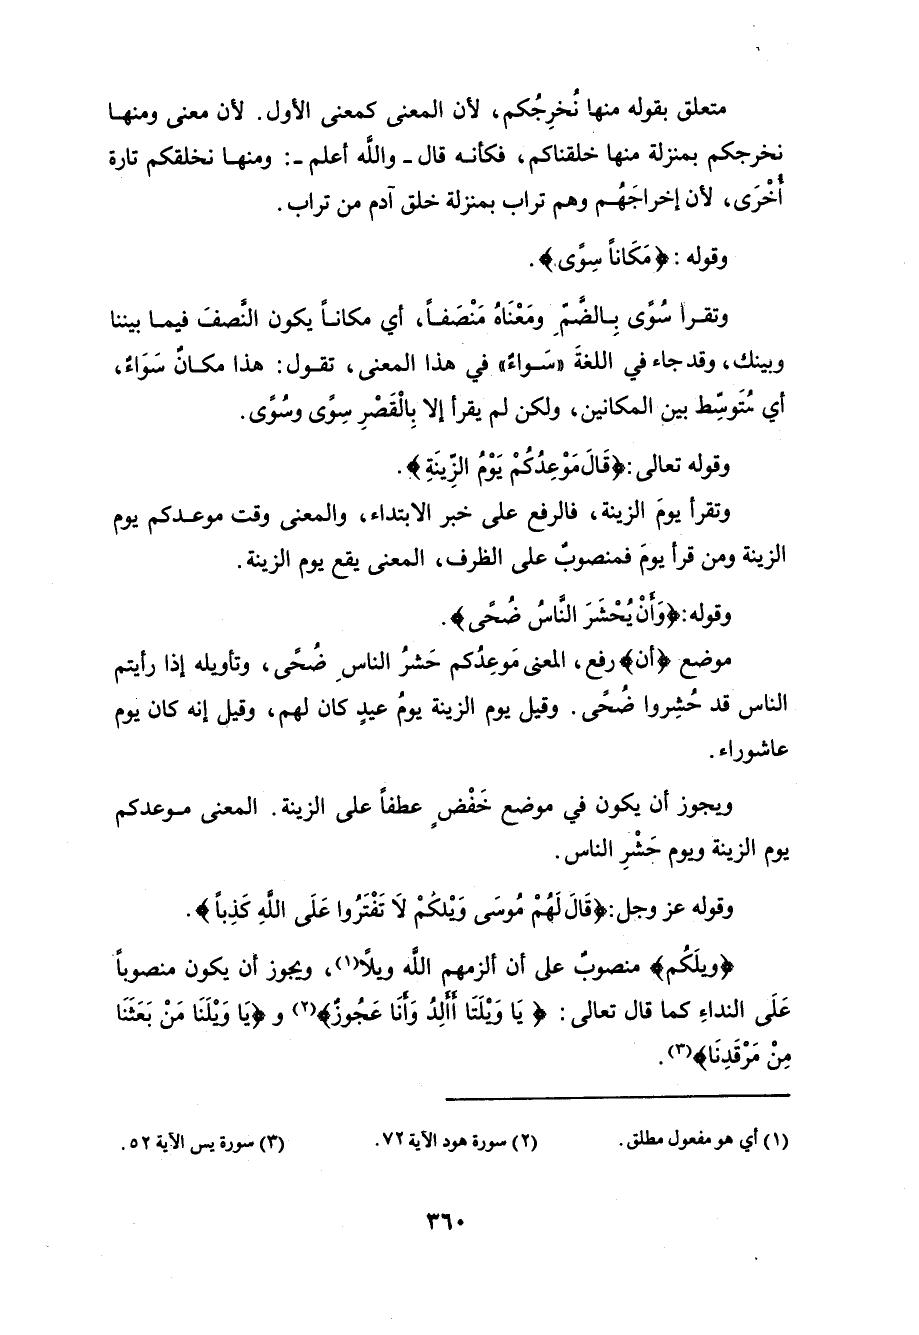 متعلق بقوله منها نُخرِجُكم، لأن المعنى كمعنى الأول. لأن معنى ومنهـا
نخرجكم بمنزلة منها خلقناكم، فكأنـه قال ـ واللَّه أعلم ـ: ومنهـا نخلقكم تارة
أُخْرَى، لأن إخراجَهُـم وهم تراب بمنزلة خلق آدم من تراب.
وقوله : ﴿مَكَاناً سِوًى﴾.
وتقـرأ سُوًى بِـالضَّمِّ ومَعْنَاهُ مَنْصَفـاً، أي مكانـاً يكون النَّصفَ فيمـا بيننا
وبينك، وقد جاء في اللغةَ «سَـواءً» في هذا المعنى، تقـول: هذا مكـانٌ سَوَاءٌ،
أي مُتَوسِّط بين المكانين، ولكن لم يقرأ إلا بِالْقَصْرِ سِوًى وسُوًى.
وقوله تعالى :﴿قَالَ مَوْعِدُكُمْ يَوْمُ الزِّينَةِ﴾.
وتقرأ يومَ الزينة، فالرفع على خبر الابتداء، والمعنى وقت موعـدكم يوم
الزينة ومن قرأ يومَ فمنصوبٌ على الظرف، المعنى يقع يوم الزينة.
وقوله:﴿وَأَنْ يُحْشَرَ النَّاسُ ضُحًى﴾.
موضع ﴿أن﴾ رفع، المعنى مَوعِدُكم حَشرُ الناسِ ضُحًى، وتأويله إذا رأيتم
الناس قد حُشِروا ضُحًى. وقيل يوم الزينة يومُ عيدٍ كان لهم، وقيل إنه كان يوم
عاشوراء.
ويجوز أن يكون في موضع خَفْضٍ عطفاً على الزينة. المعنى مـوعدكم
يوم الزينة ويوم حَشْرِ الناس.
وقوله عز وجل:﴿قَالَ لَهُمْ مُوسَى وَيْلكُمْ لَا تَفْتَرُوا عَلَى اللَّهِ كَذِباً﴾.
﴿ويلَكُم﴾ منصوبٌ على أن ألزمهم اللَّه ويلًا(١)، ويجوز أن يكون منصوباً
عَلَى النداءِ كما قال تعالى: ﴿ يَا وَيْلَتَا أَأَلِدُ وَأَنَا عَجُوزٌ﴾(٢) و ﴿يَا وَيْلَنَا مَنْ بَعَثَنَا
مِنْ مَرْقَدِنَا﴾(٣).
(١) أي هو مفعول مطلق. (٢) سورة هود الآية ٧٢. (٣) سورة يس الآية ٥٢.
٣٦٠